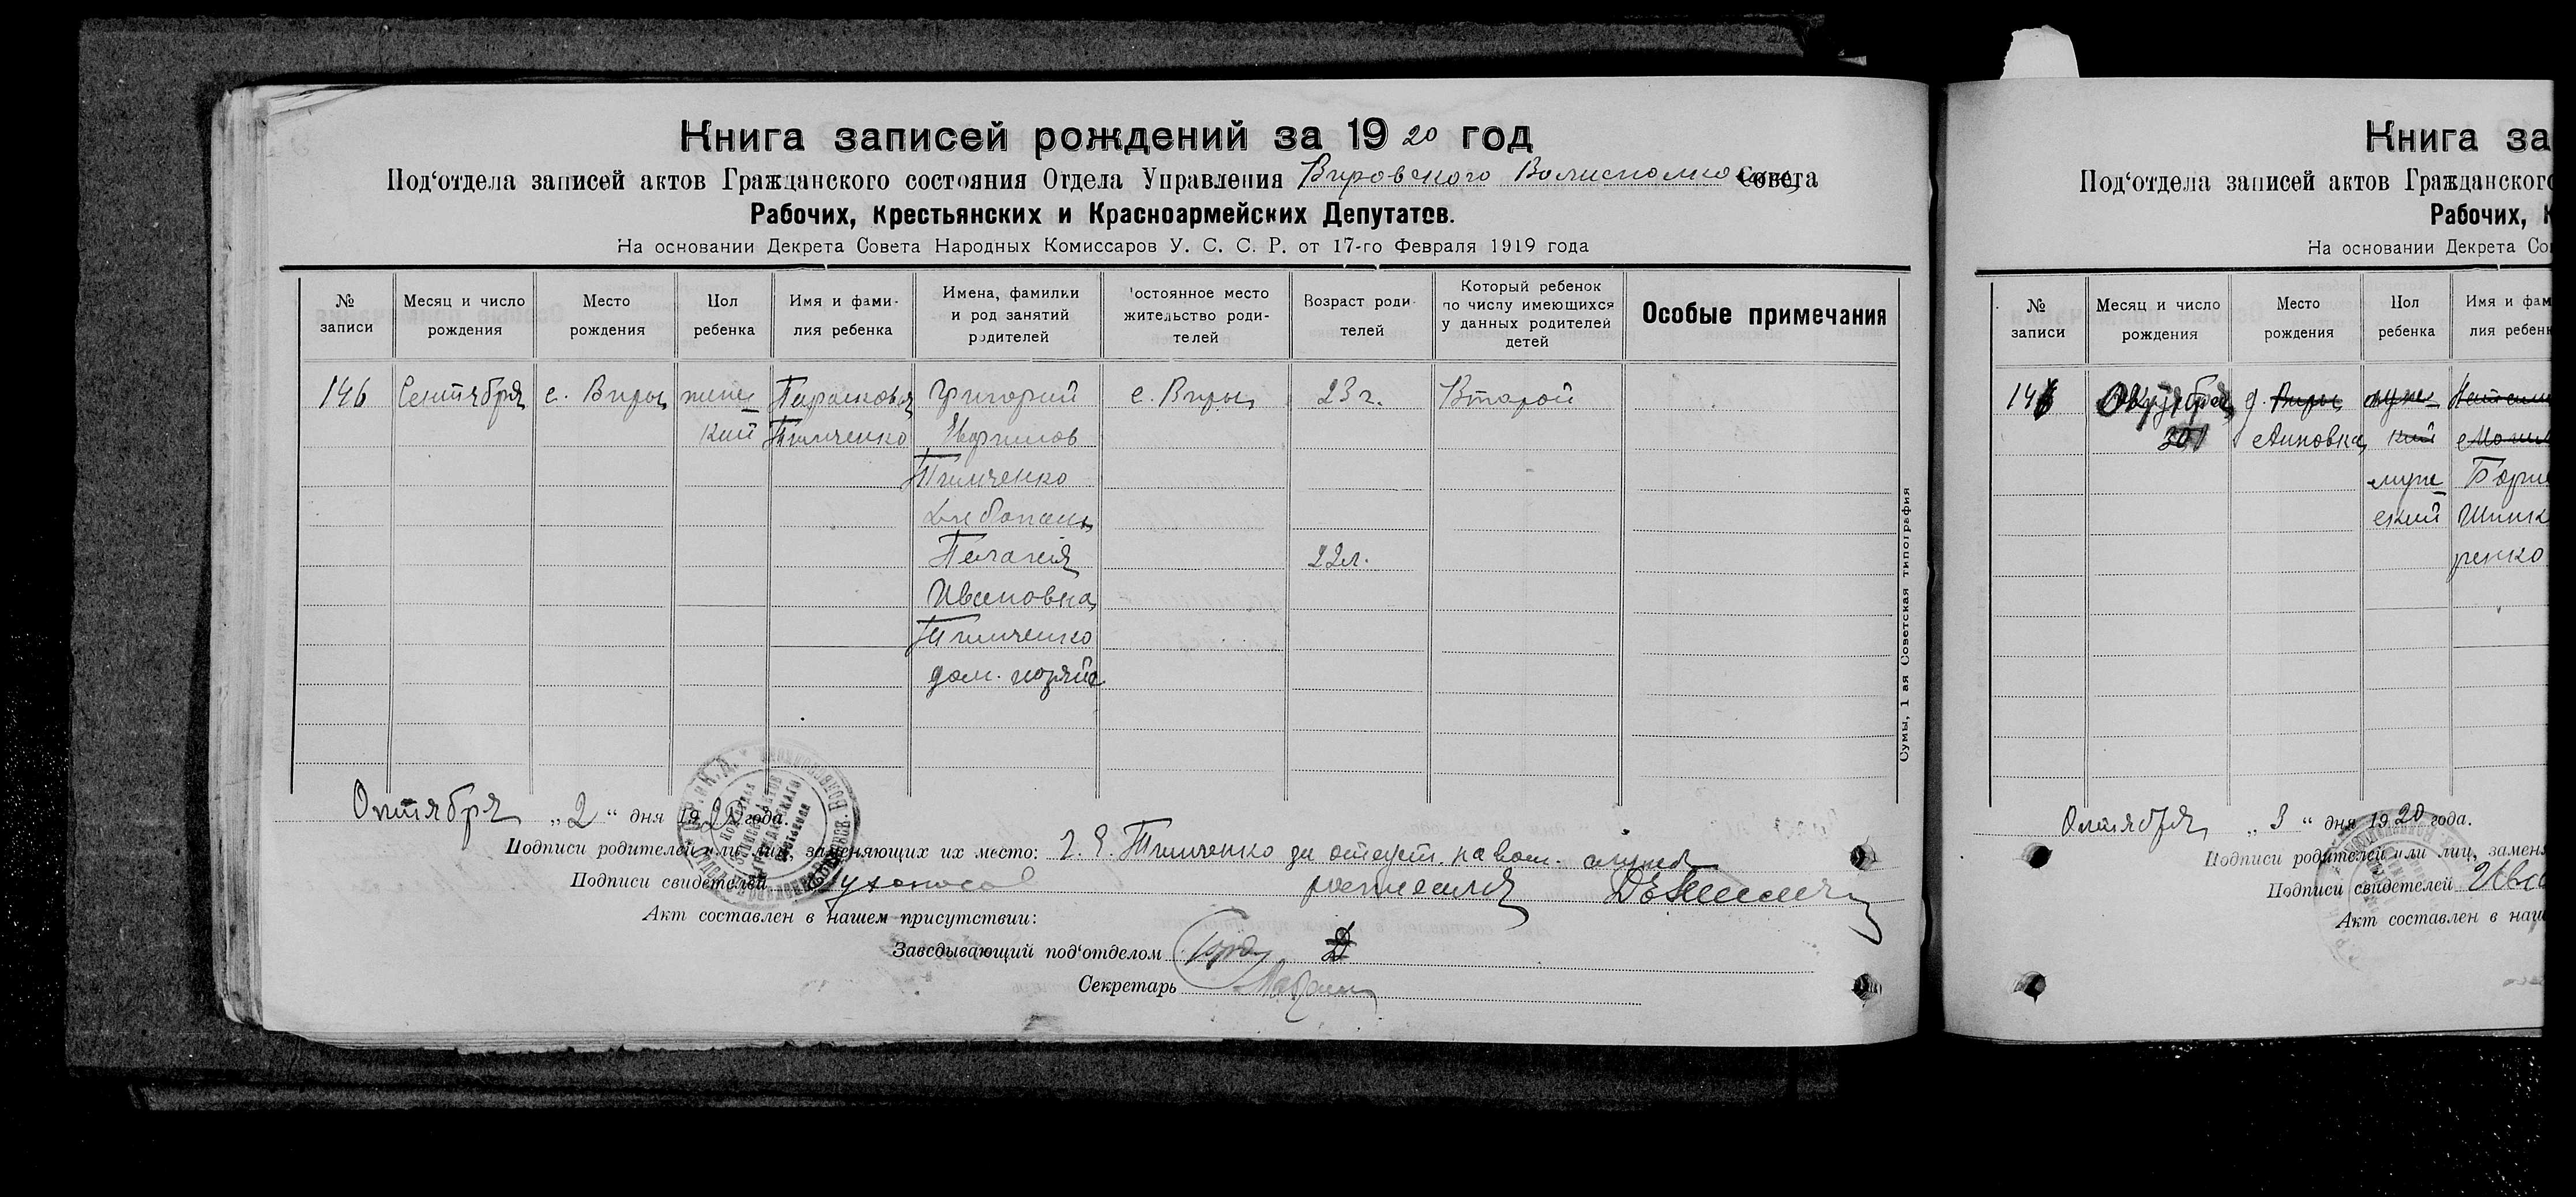 Книга записей рождений за 1920 год
Под‘отдела записей актов Гражданского состояния Отдела Управления Вировского Волисполкома Совета
Рабочих, Крестьянских и Красноармейских Депутатов.
На основании Декрета Совета Народных Комиссаров У. С. С. Р. от 17-го Февраля 1919 года
№ записи
Месяц и число рождения
Место рождения
Пол ребенка
Имя и фами-
лия ребенка
Имена, фамилии
и род занятий
родителей
Постоянное место
жительство роди-
телей
Возраст роди-
телей
Который ребенок
по числу имеющихся
у данных родителей
детей
Особые примечания
146 Сентября с. Виры женс Парасковья Григорий с. Виры 23 г. Второй
кий Тимченко
Тимченко
хлебопаш
Пелагея 22 л.
Ивановна
Тимченко
дом.
Сумы, 1 ая Советская типография
Октября „2“ дня 1920 года.
Подписи родителей или лиц, заменяющих их место: Г. Е. Тимченко за
Подписи свидетелей
Акт составлен в нашем присутствии:
Заведывающий под‘отделом
Секретарь
Книга за
Под‘отдела записей актов Гражданского
Рабочих, К
На основании Декрета Со
№ записи
Месяц и число
рождения
Место
рождения
Пол
ребенка
Имя и фам
лия ребенк
Октября д. Виры муж
Анновка кий
муж
ский
ренко
Октября „3“ дня 1920 года.
Подписи родителей или лиц, заменя
Подписи свидетелей
Акт составлен в наш